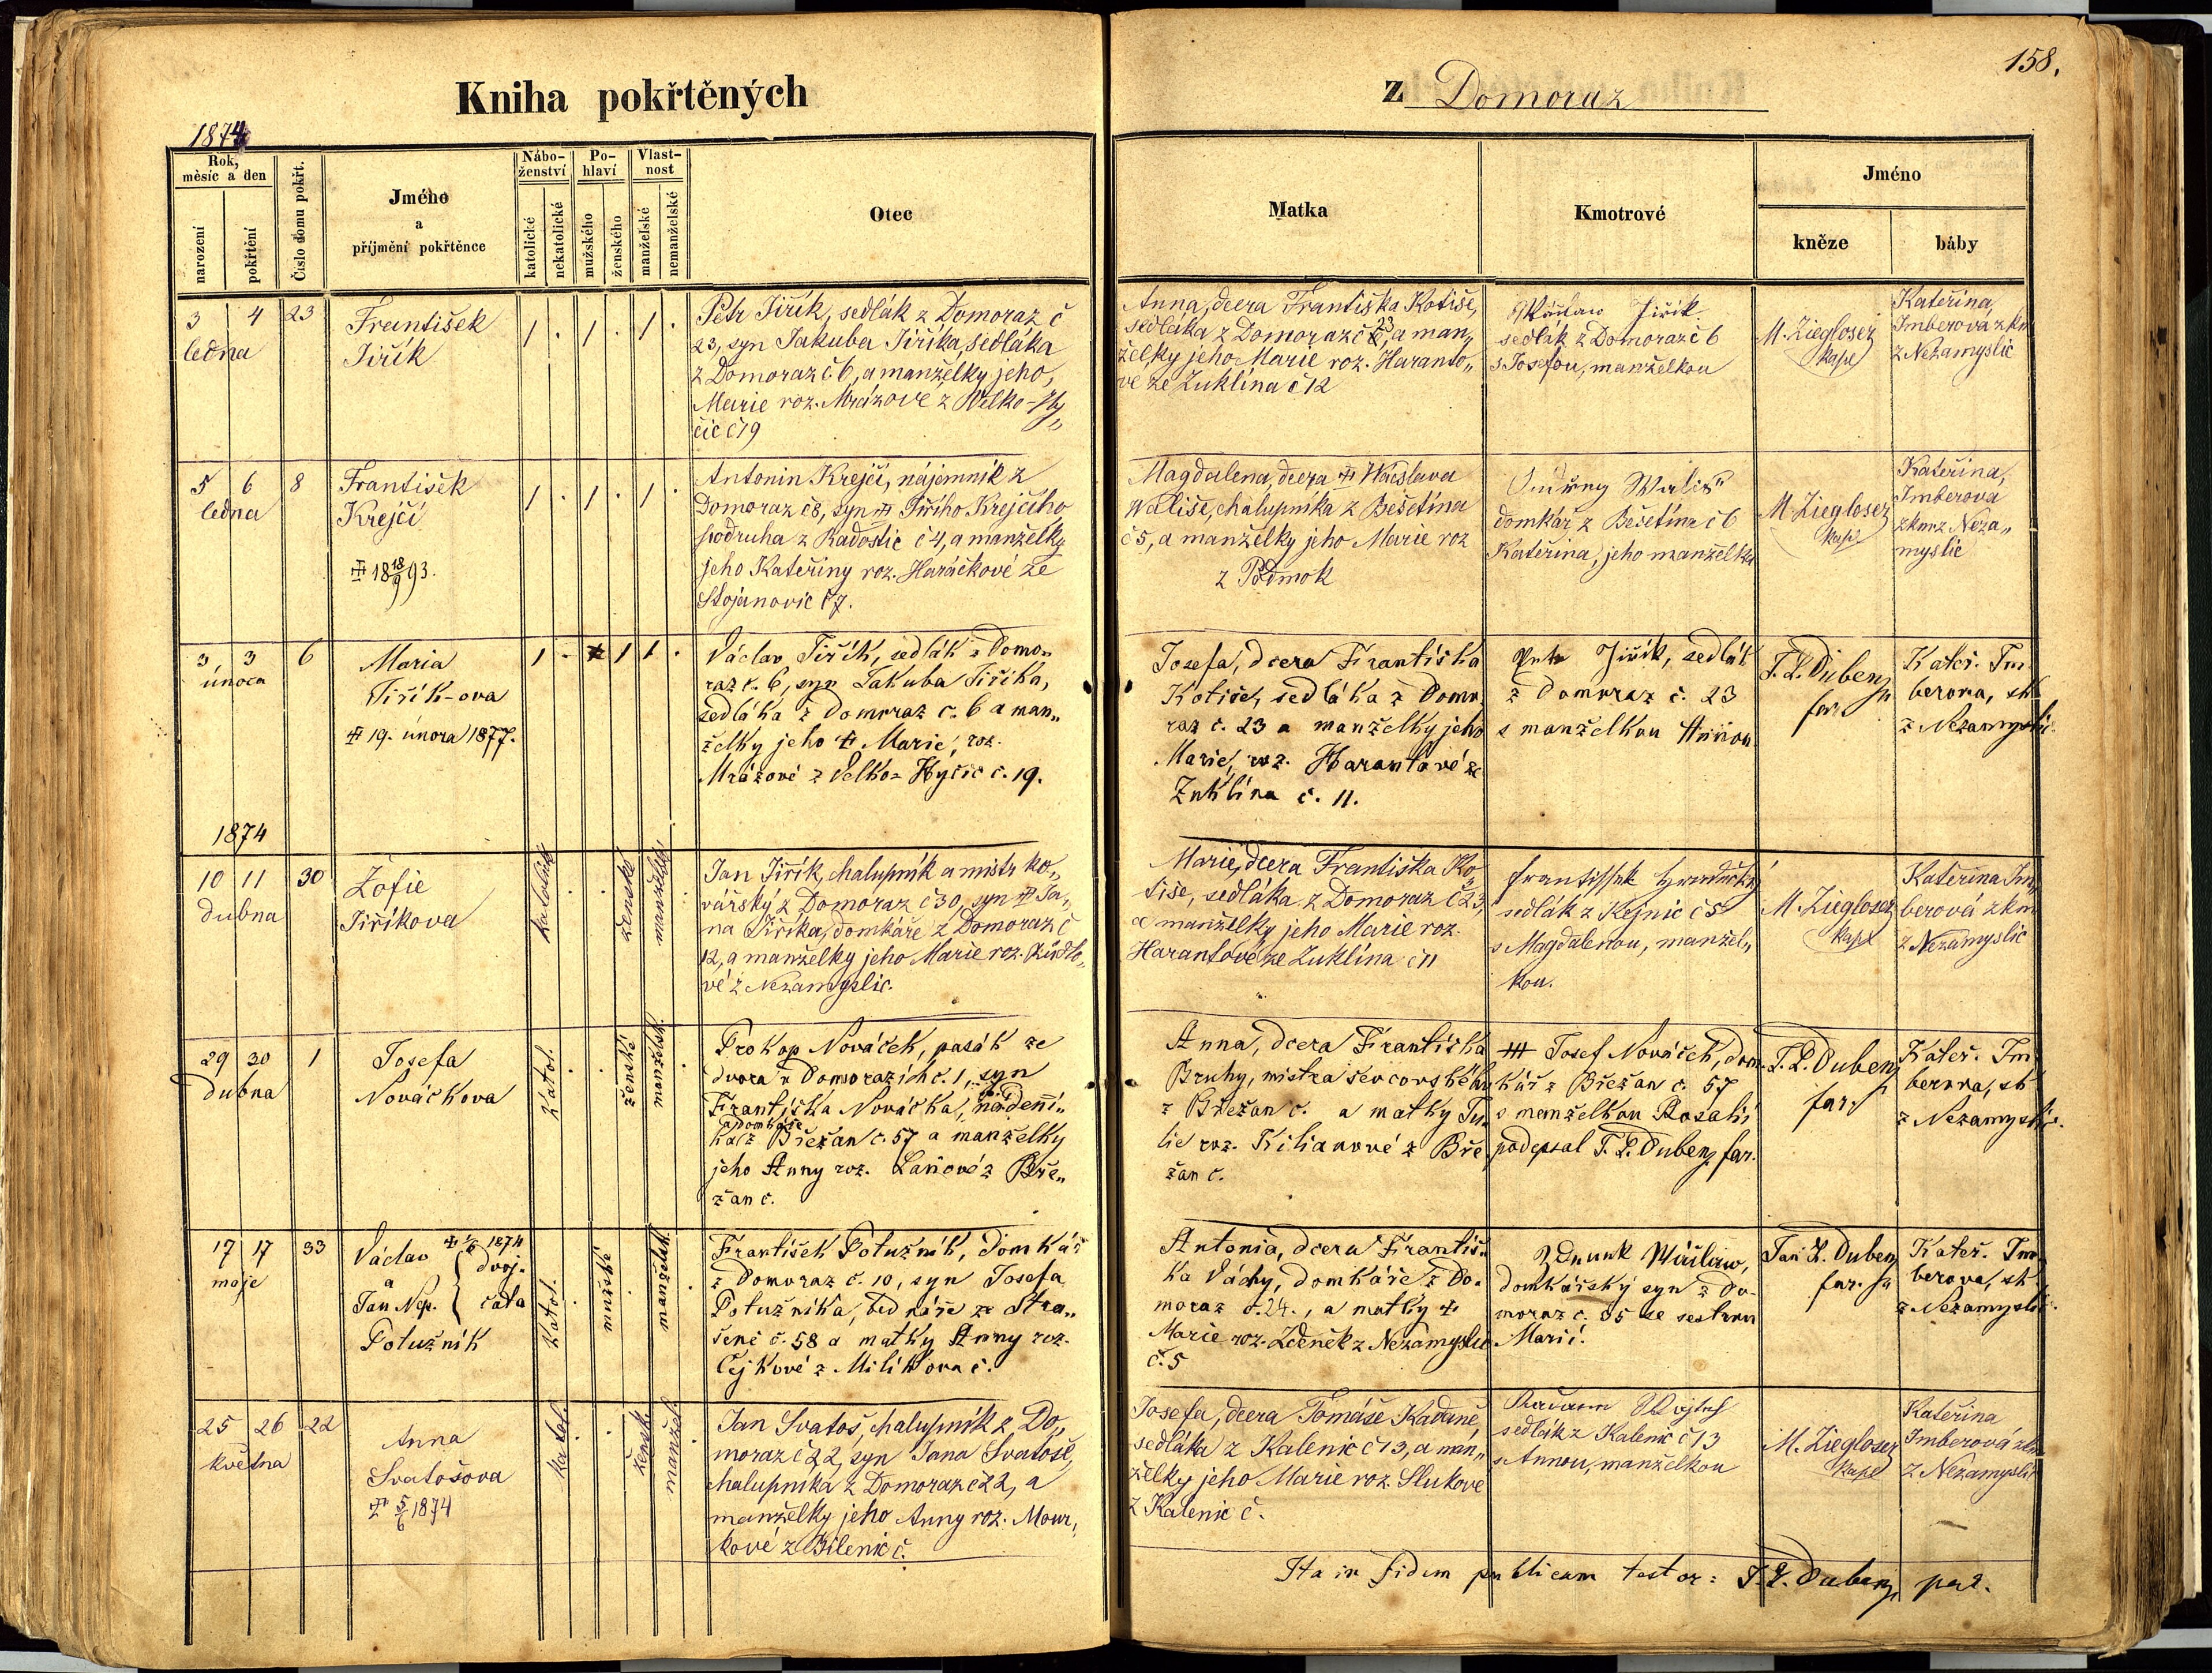 Kniha pokřtěných
z Domoraz
158.
1874
Rok,
měsíc a den
narození
pokřtění
Číslo domu pokřt.
Jméno
a
příjmění pokřtěnce
Nábo-
ženství
katolické
nekatolické
Po-
hlaví
mužského
ženského
Vlast-
nost
manželské
nemanželské
Otec
Matka
Kmotrové
Jméno
kněze
báby
3 4 23
ledna
František
Jiřík
1 . 1 . 1 .
Petr Jiřík, sedlák z Domoraz č
23, syn Jakuba Jiříka, sedláka
z Domoraz č 6, a manželky jeho,
Marie roz. Mrázove z Welko-Hy„
čic č 19
Anna, dcera Františka Kotiše,
sedláka z Domoraz č 23, a man„
želky jeho Marie roz. Haranto„
ve ze Zuklína č 12
Wáclaw Jiřík
sedlák z Domoraz č 6
s Josefou, manželkou
M. Ziegloser
kapl
Kateřina,
Imberova zkm
z Nezamyslic
5 6 8
ledna
František
Krejčí
18 18/9 93.
1 . 1 . 1 .
Antonin Krejčí, nájemník z
Domoraz č 8, syn Jiřího Krejčího
podruha z Radostic č 4, a manželky
jeho Kateřiny roz. Haráčkové ze
Stojanovic č 7.
Magdalena, dcera Wáclava
Wališe, chalupníka z Bešetína
č 5, a manželky jeho Marie roz
z Podmok
Wališ
domkář z Bešetína č 6
Kateřina, jeho manželka
M. Ziegloser
kapl
Kateřina,
Imberova
zkm z Neza„
myslic
3, 3 6
února
Maria
Jiřík-ova
19. února 1877.
1 . 1 1 .
Václav Jiřík, sedlák z Domo„
raz č. 6, syn Jakuba Jiříka,
sedláka z Domoraz č. 6 a man„
želky jeho Marie, roz.
Mrázové z Velko-Hyčic č. 19.
Josefa, dcera Františka
Kotiše, sedláka z Domo
raz č. 23 a manželky jeho
Marie, roz. Harantové ze
Zuklína č. 11.
Petr Jiřík, sedlák
z Domoraz č. 23
s manželkou Annou
J. L. Dubenz
far.
Kateř. Im
berova, zk
z Nezamyslic
1874
10 11 30
dubna
Žofie
Jiříkova
katolické . . ženské manželské .
Jan Jiřík, chalupník a mistr ko„
vářský z Domoraz č 30, syn Ja„
na Jiříka, domkáře z Domoraz č
12, a manželky jeho Marie roz.
vé z Nezamyslic.
Marie, dcera Františka Ko„
tiše, sedláka z Domoraz č 23,
a manželky jeho Marie roz.
Harantové ze Zuklína č 11
Frantisſek
sedlák z Kejnic č 5
s Magdalenou, manžel„
kou.
M. Ziegloser
kapl
Kateřina Im„
berová zkm
z Nezamyslic
29 30 1
dubna
Josefa
Nováčkova
katol. . . ženské manželsk. .
Prokop Nováček, pasák ze
dvora v Domorazích č. 1, syn
Františka Nováčka, nádenní„
a domkáře
ka z Břežan č. 57 a manželky
jeho Anny roz. Laňové z Bře„
žan č.
Anna, dcera Františka
Bruhy, mistra ševcovského
z Břežan č. a matky Ju„
lie roz. Kilianové z Bře
žan č.
+++ Josef Nováček, dom-
kář z Břežan č. 57
s manželkou Rosalií
podepsal J. L. Dubenz far.
J. L. Dubenz
far.
Kateř. Im
berova, zk
z Nezamyslic.
17 17 33
maje
Václav 1874
a dvoj-
Jan Nep. čata
Potužník
katol. . mužské . manželsk. .
František Potužník, domkář
z Domoraz č. 10, syn Josefa
Potužníka, bednáře ze Stra„
šené č. 58 a matky Anny roz.
Čejkové z Milíkova č.
Antonia, dcera Františ„
ka Váchy, domkáře z Do-
moraz č. 24., a matky
Marie roz. Zdeněk z Nezamyslic
č. 5
Wáclaw,
domkářský syn z Do-
moraz č. 35 se sestrou
Marií.
Jan L. Dubenz
far.
Kateř. Im
berova, zk
z Nezamyslic.
25 26 22
května
Anna
Svatošova
5/6 1874
katol. . . žensk. manžel. .
Jan Svatoš, chalupník z Do„
moraz č 22, syn Jana Svatoše,
chalupníka z Domoraz č 22, a
manželky jeho Anny roz. Mour„
kové z Bilenic č.
Josefa, dcera Tomáše Kadaně,
sedláka z Kalenic č 13, a man„
želky jeho Marie roz. Slukove
z Kalenic č.
sedlák z Kalenic č 13
s Annou, manželkou
M. Ziegloser
kapl
Kateřina
Imberová zkm
z Nezamyslic
Ita in fidem publicam testor: J. L. Dubenz, par.